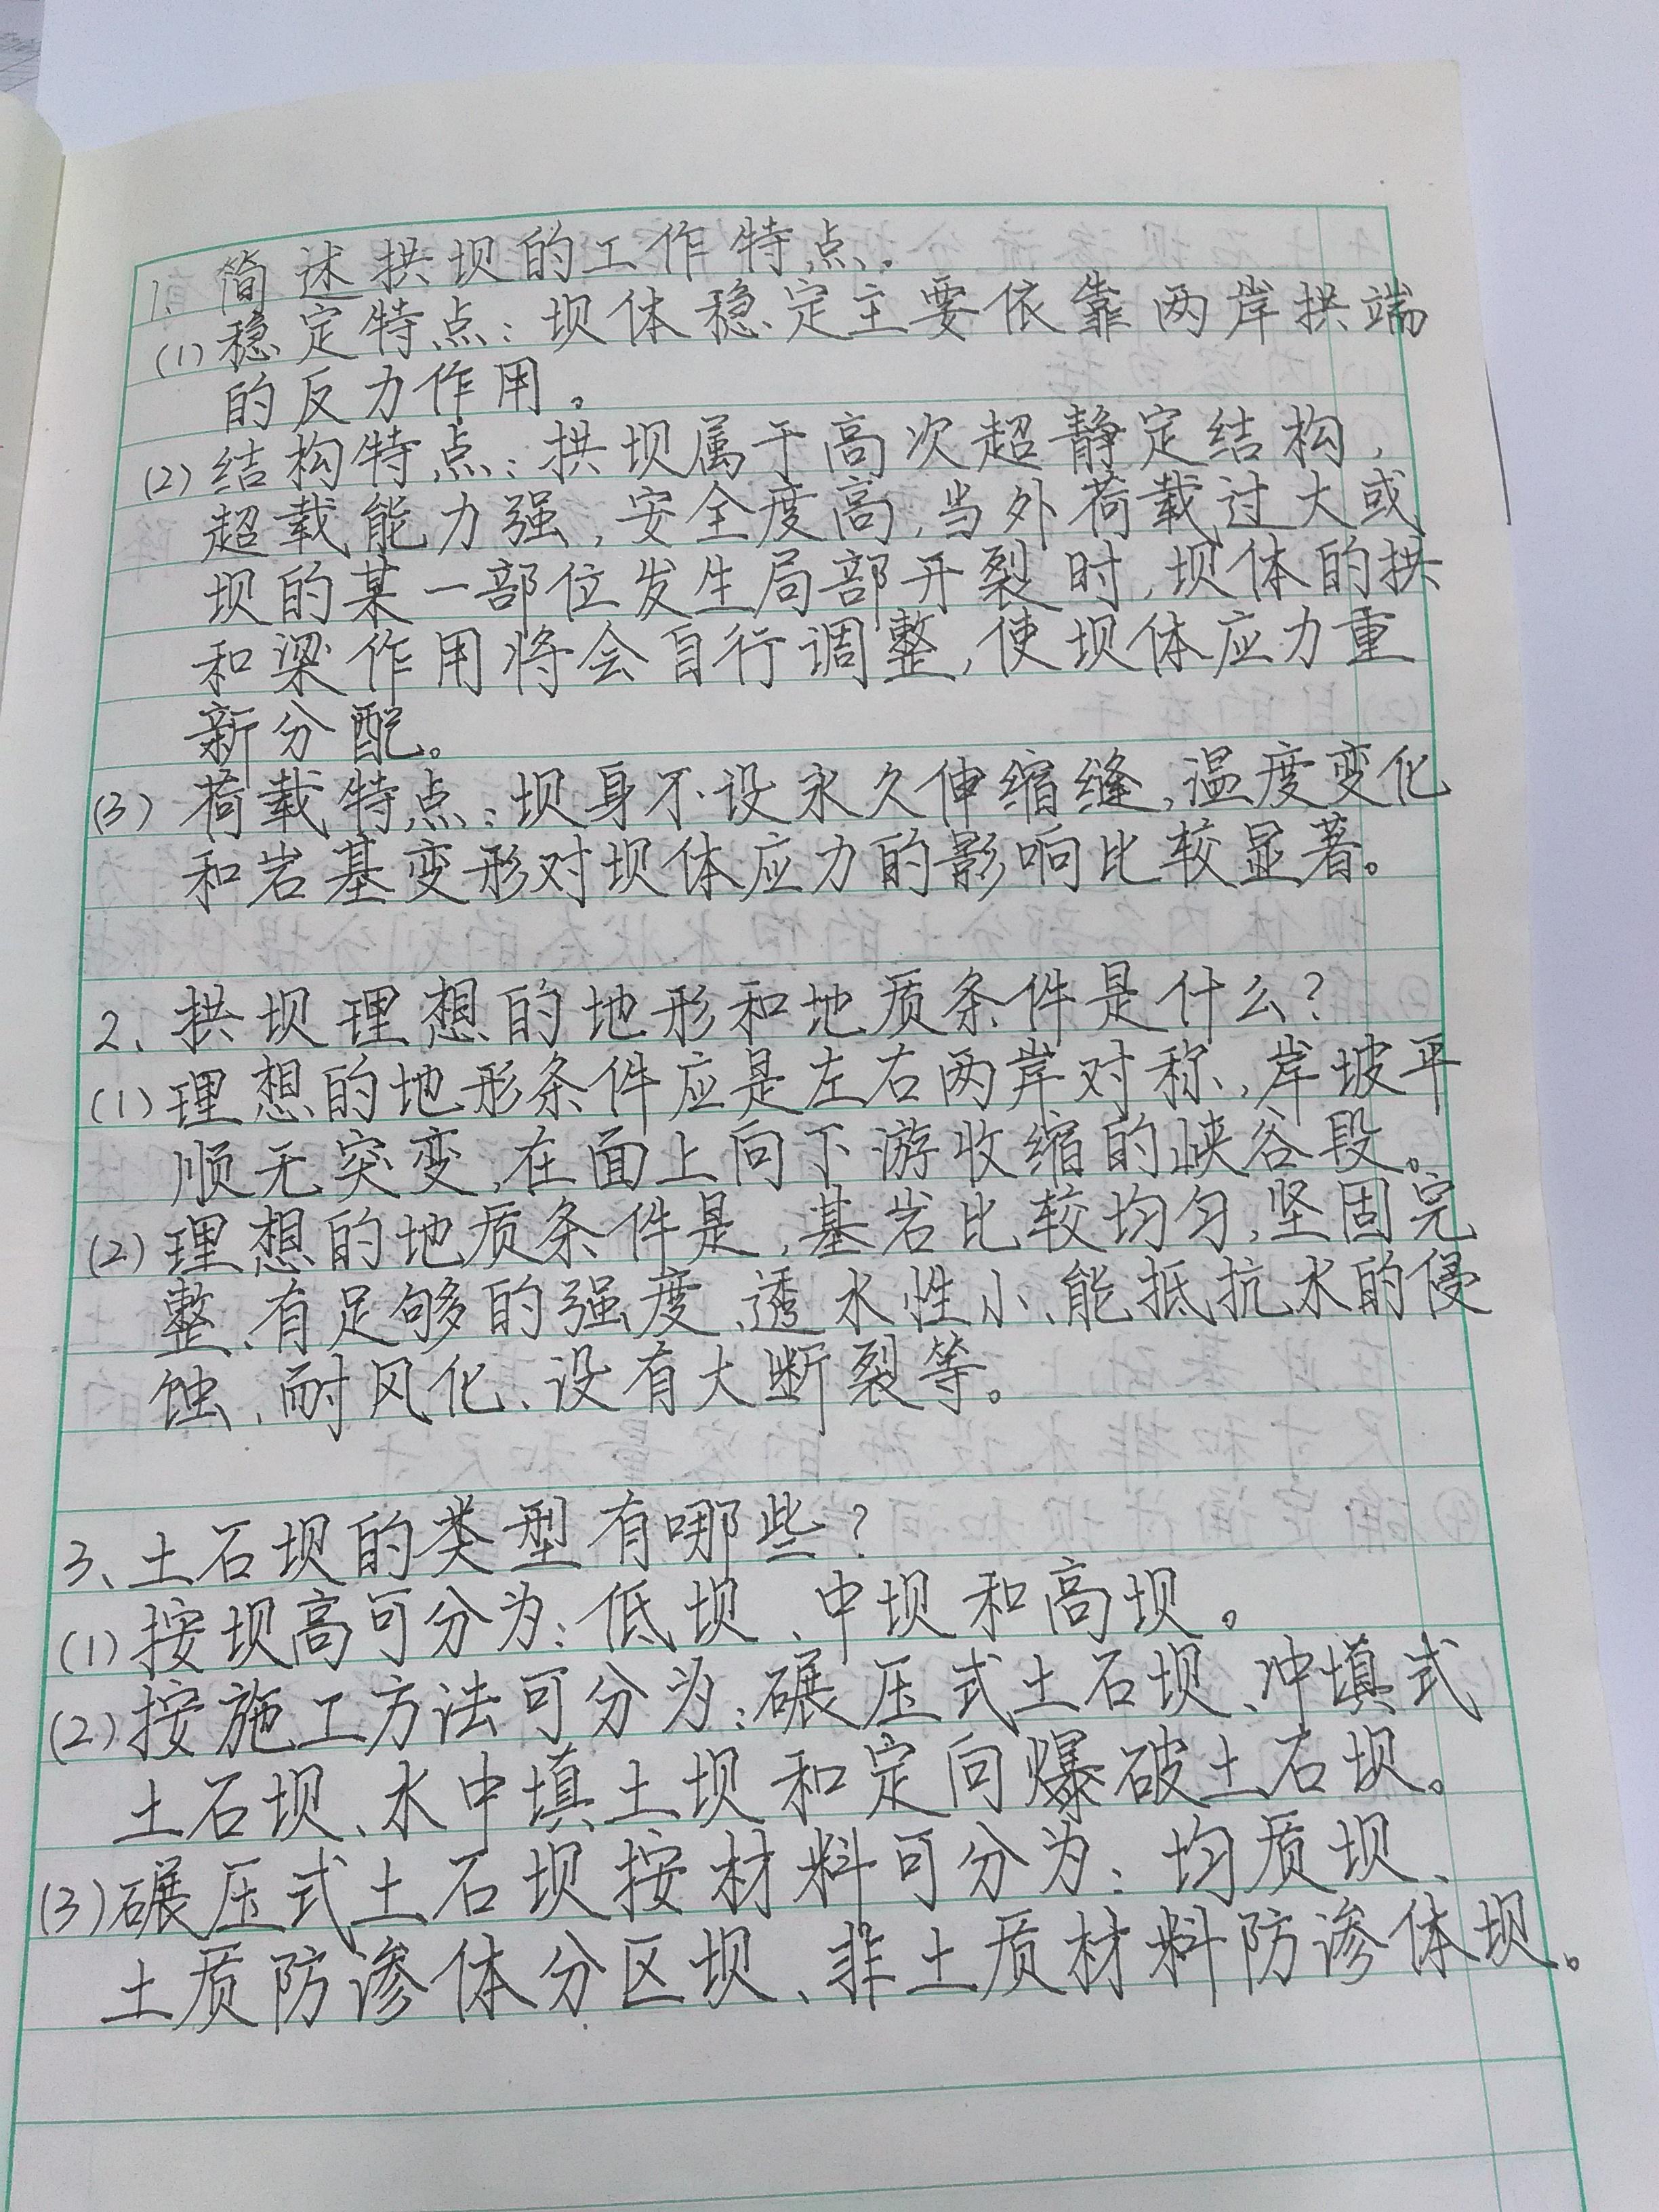 1. 简述拱坝的工作特点。
(1) 稳定特点：坝体稳定主要依靠两岸拱端
的反力作用。
(2) 结构特点：拱坝属于高次超静定结构，
超载能力强，安全度高，当外荷载过大或
坝的某一部位发生局部开裂时，坝体的拱
和梁作用将会自行调整，使坝体应力重
新分配。
(3) 荷载特点：坝身不设永久伸缩缝，温度变化
和岩基变形对坝体应力的影响比较显著。
2、拱坝理想的地形和地质条件是什么？
(1) 理想的地形条件应是左右两岸对称，岸坡平
顺无突变，在面上向下游收缩的峡谷段。
(2) 理想的地质条件是，基岩比较均匀，坚固完
整、有足够的强度、透水性小、能抵抗水的侵
蚀、耐风化、设有大断裂等。
3、土石坝的类型有哪些？
(1) 按坝高可分为：低坝、中坝和高坝。
(2) 按施工方法可分为：碾压式土石坝、冲填式
土石坝、水中填土坝和定向爆破土石坝。
(3) 碾压式土石坝按材料可分为：均质坝、
土质防渗体分区坝、非土质材料防渗体坝。